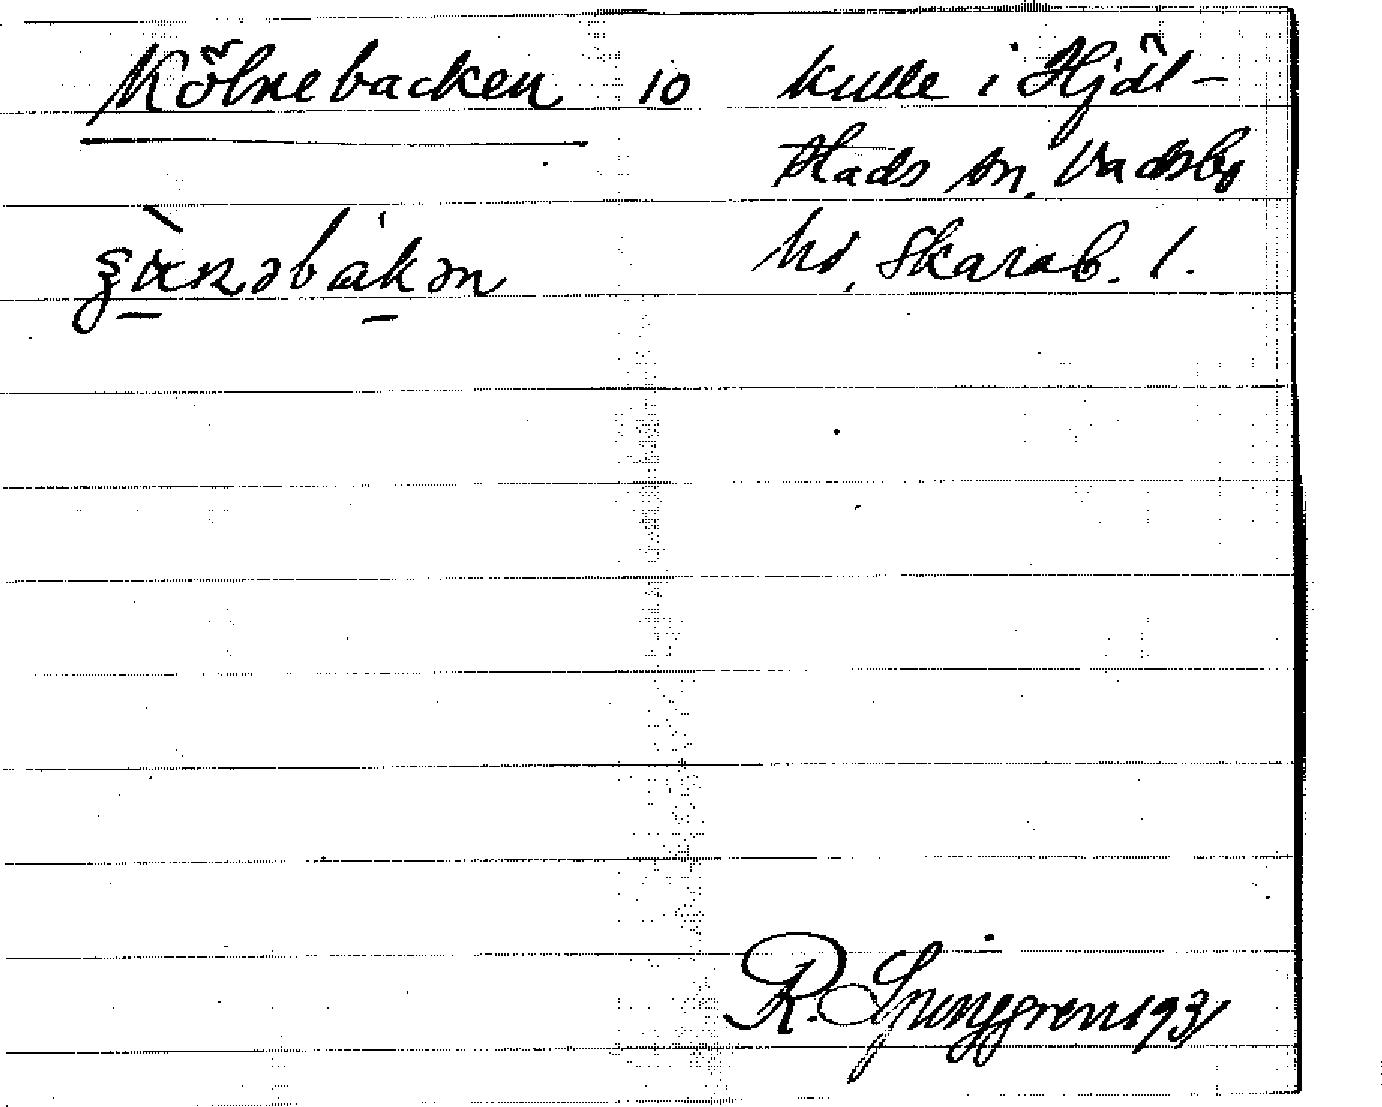 Kölnebacken 10 kulle i Hjäl-
stads sn, Vadsbo
hd, Skarab. l.
R. Ljunggren 1931